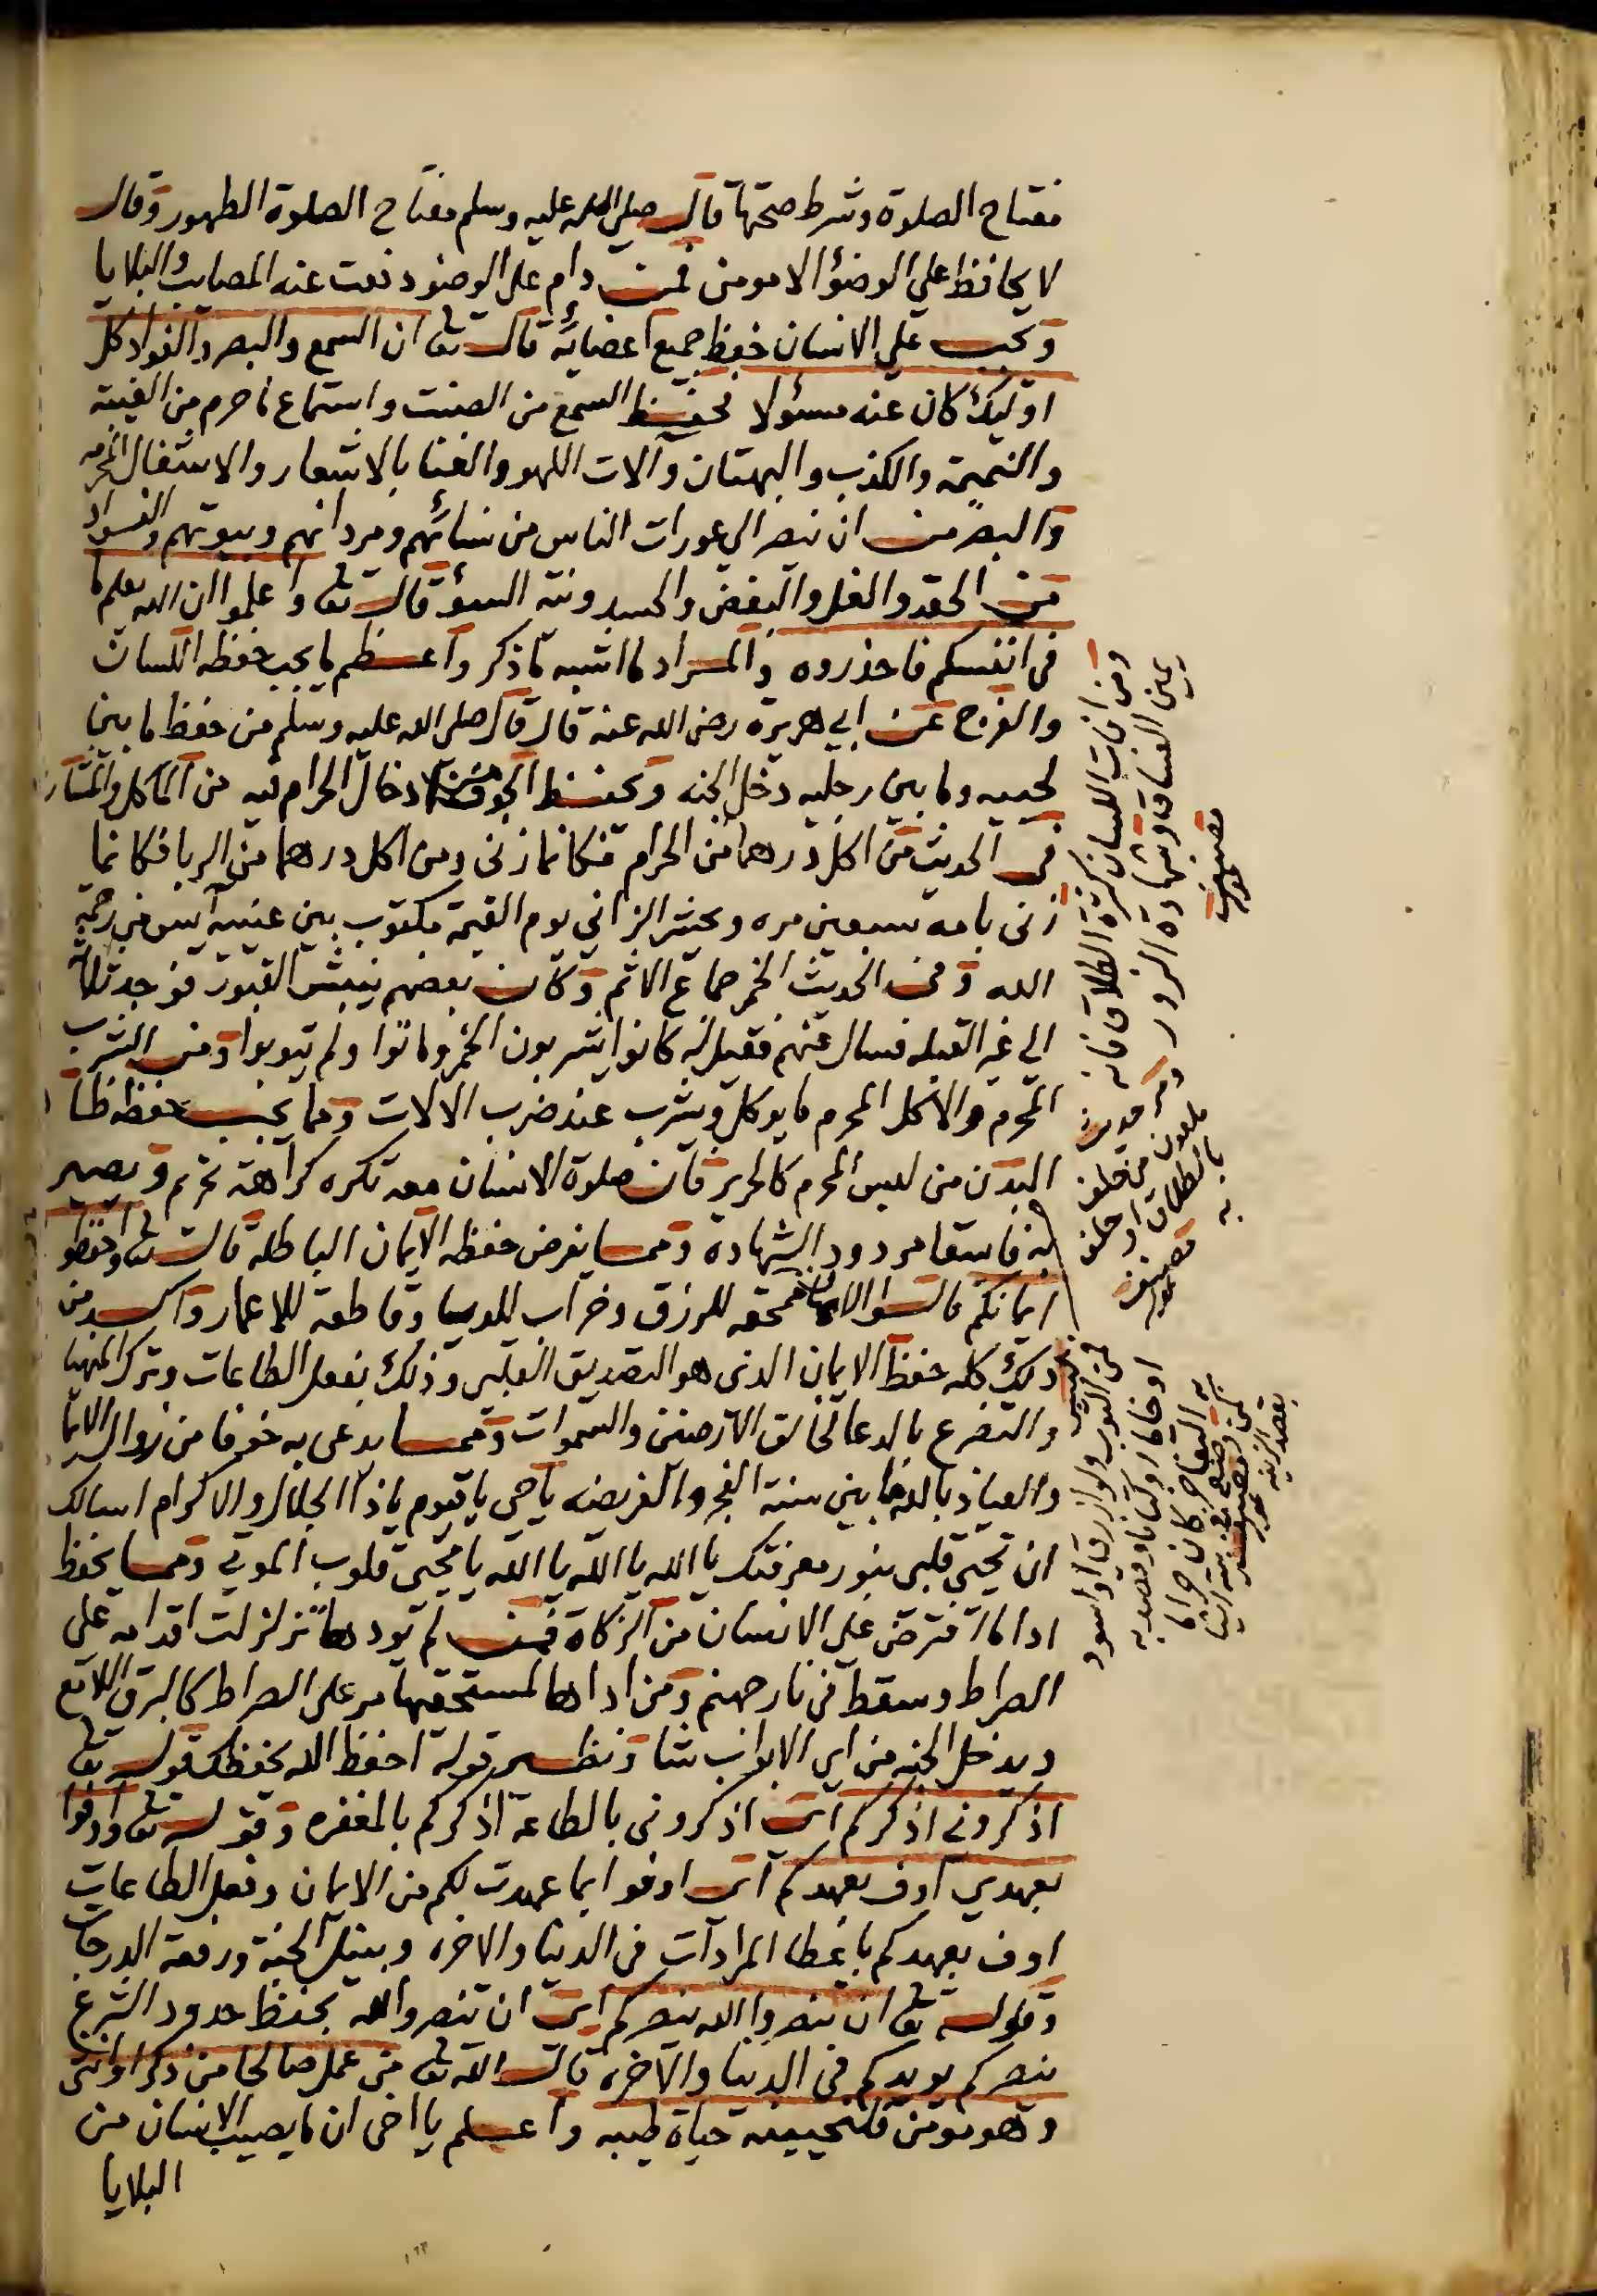 مفتاح الصلوة وشرط صحتها قال صلى الله عليه وسلم مفتاح الصلوة الطهور وقال
لا يحافظ علي الوضؤ الا مومن فمن دام على الوضو دفعت عنه المصايب والبلايا
ويجب علي الانسان حفظ جميع اعضائه قال تعا ان السمع والبصر والفواد كل
اوليك كان عنه مسؤلا فحفظ السمع من الصنت واستماع ما حرم من الغيبة
والنميمة والكذب والبهتان وآلات اللهو والغنا بالاشعار والاشتغال المحرمه
والبصر من ان ينصر الي عورات الناس من نسائهم ومردانهم وبيوتهم والفواد
من الحقد والغل والبغض والحسد ونية السوؤ قال تعا واعلموا ان الله يعلم ما
في انفسكم فاحذروه والمراد ما اشبه ما ذكر واعظم ما يجب حفظه اللسان
والفرج عن ابي هريرة رضي الله عنه قال قال صلى الله عليه وسلم من حفظ ما بين
لحييه وما بين رجليه دخل الجنه ويحفظ الجوف من ادخال الحرام فيه من المآكل والمشارب
في الحديث من اكل درهما من الحرام فكانما زنى ومن اكل درهما من الربا فكانما
زنى بامه سبعين مره ويحشر الزاني يوم القيمة مكتوب بين عينيه آيس من رحمة
الله وفي الحديث الخمر جماع الاثم وكان بعضهم ينبش القبور فوجد
الي غير القبله فسال عنهم فقيل له كانوا يشربون الخمر وماتوا ولم يتوبوا ومن الشرب
المحرم والاكل المحرم ما يوكل ويشرب عند ضرب الالات ومما يجب حفظه
البدن من لبس المحرم كالحرير فان صلوة الانسان معه تكره كراهة تحريم ويصير
به فاسقا مردود الشهادة ومما يفرض حفظه الايمان الباطلة قال تعا واحفظوا
ايمانكم قالوا الايمان ممحقه للرزق وخراب للديار وقاطعة للاعمار واكد من
ذلك كله حفظ الايمان الذي هو التصديق القلبي وذلك بفعل الطاعات وترك المنهيات
والتضرع بالدعا لخالق الارضين والسموات ومما يدعى به خوفا من زوال الايمان
والعياذ بالله ما بين سنة الفجر والفريضه ياحي ياقيوم ياذا الجلال والاكرام اسالك
ان تحيي قلبي بنور معرفتك يا الله يا الله يا الله يا محيي قلوب الموتي ومما يحفظ
ادا ما افترض على الانسان من الزكاة فمن لم يودها تزلزلت اقدامه على
الصراط وسقط في نار جهنم ومن اداها لمستحقها مر على الصراط كالبرق اللامع
ويدخل الجنه من اي الابواب شا ونظير قوله احفظ الله يحفظك قوله تعا
اذكروني اذكركم اي اذكروني بالطاعة اذكركم بالمغفره وقوله تعا واوفوا
بعهدي اوف بعهدكم اي اوفوا بما عهدت لكم من الايمان وفعل الطاعات
اوف بعهدكم باعطا المرادات في الدنيا والاخره وبنيل الجنة ورفعة الدرجات
وقوله تعا ان تنصروا الله ينصركم اي ان تنصروا الله بحفظ حدود الشرع
ينصركم يويدكم في الدنيا والآخره قال الله تعا من عمل صالحا من ذكر او انثى
وهو مومن فلنحيينه حياة طيبه واعلم يا اخي ان ما يصيب الانسان من
البلايا
ومن افات اللسان كثرة الطلاق فانه
يمين الفساق وشهادة الزور
ملعون من حلف
بالطلاق او حلف
به
من الثوب ولو ازرق او اسود
او خاتما او كتابا وقصد به
به التفاخر كان حراما